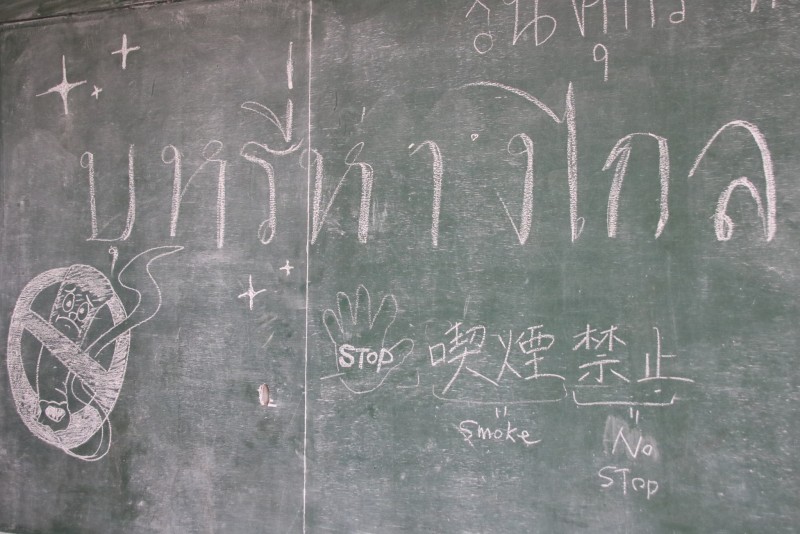 บุหรี่ห่างไกล
STOP 喫煙 禁止
= =
Smoke No
STOP